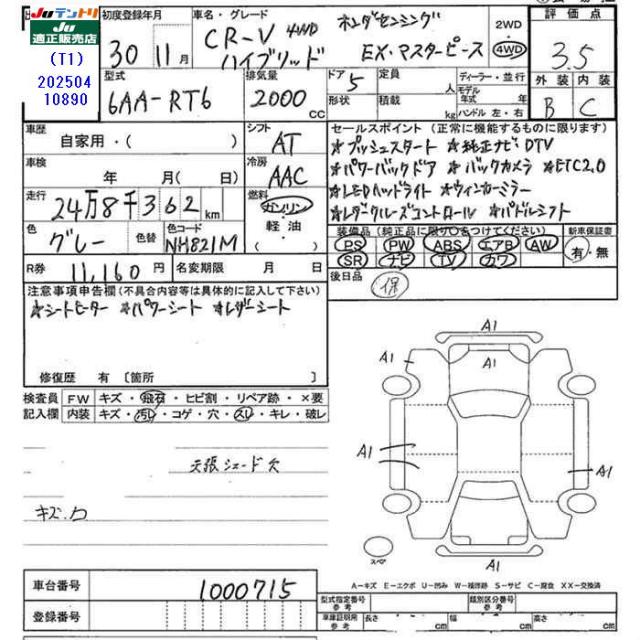 JUテントリ
Ju
適正販売店
(T1)
202504
10890
初度登録年月
30 11月
車名・グレード
CR-V 4WD
ハイブリッド
ホンダセンシング
EX・マスターピース
2WD
4WD
評価点
3.5
外装 内装
B C
型式
6AA-RT6
排気量
2000 cc
ドア 5
形状
定員 人
積載 kg
ディーラー・並行
モデル年式 年
ハンドル 左・右
車歴
自家用・( )
シフト
AT
車検
年 月( 日)
冷房
AAC
走行
24万8千362 km
燃料
ガソリン
軽油
( )
色
グレー
色替
色コード
NH821M
R券
11,160円
名変期限 月 日
セールスポイント(正常に機能するものに限ります)
★プッシュスタート ★純正ナビDTV
★パワーバックドア ★バックカメラ ★ETC2.0
★LEDヘッドライト ★ウィンカーミラー
★レダクルーズコントロール ★パドルシフト
装備品(純正品に限り○をつけてください)
PS PW ABS エアB AW
SR ナビ TV カワ
新車保証書
有・無
後日品
保
注意事項申告欄(不具合内容等は具体的に記入して下さい)
★シートヒーター ★パワーシート ★レダーシート
修復歴 有 [箇所
検査員 FW キズ・飛石・ヒビ割・リペア跡・×要
記入欄 内装 キズ・汚れ・コゲ・穴・スレ・キレ・破レ
天張シェード欠
キズ.凹
A1
A1
A1
A1
A1
A1
スペア
A-キズ E-エクボ U-凹み W-補修跡 S-サビ C-腐食 XX-交換済
車台番号 1000715
登録番号
型式指定番号 参考
類別区分番号 参考
車庫証明用 参考 長さ cm 幅 cm 高さ cm